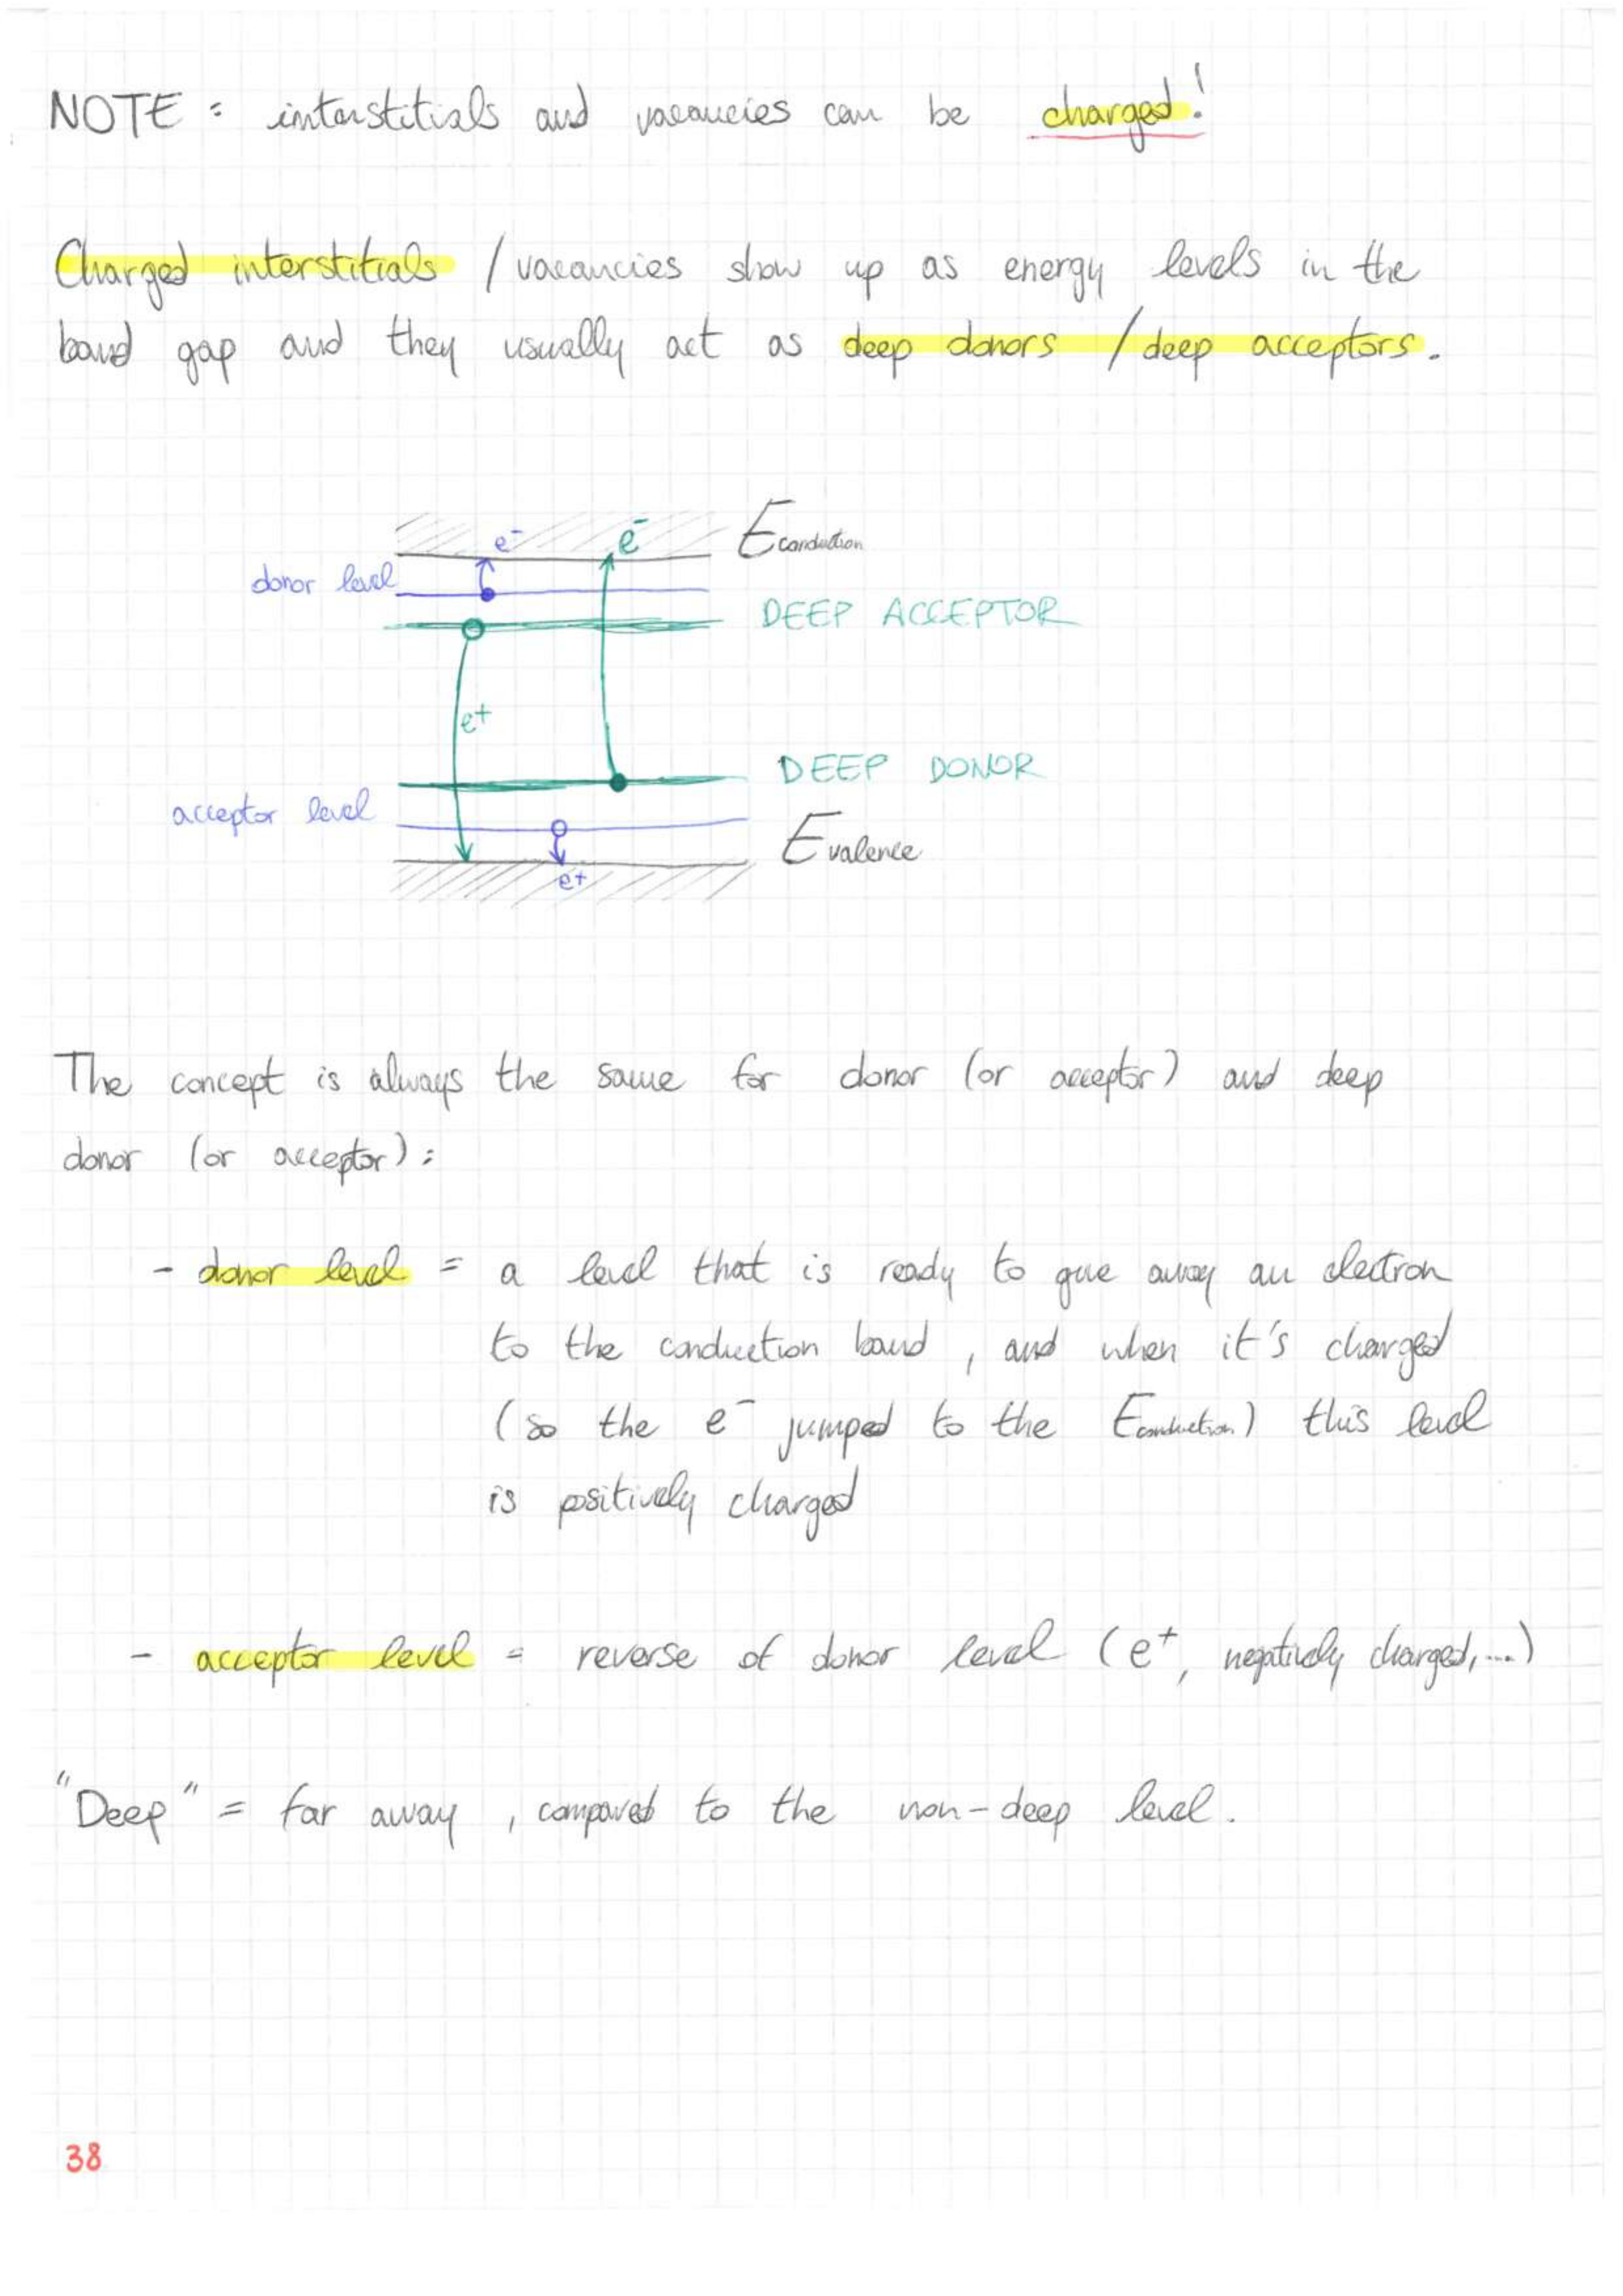 NOTE : interstitials and vacancies can be charged!
Charged interstitials / vacancies show up as energy levels in the
band gap and they usually act as deep donors / deep acceptors.
e⁻ e⁻ Econduction
donor level
DEEP ACCEPTOR
e+
DEEP DONOR
acceptor level
Evalence
e+
The concept is always the same for donor (or acceptor) and deep
donor (or acceptor) :
- donor level = a level that is ready to give away an electron
to the conduction band , and when it's charged
(so the e⁻ jumped to the Econduction) this level
is positively charged
- acceptor level = reverse of donor level (e+, negatively charged, ...)
"Deep" = far away , compared to the non-deep level.
38